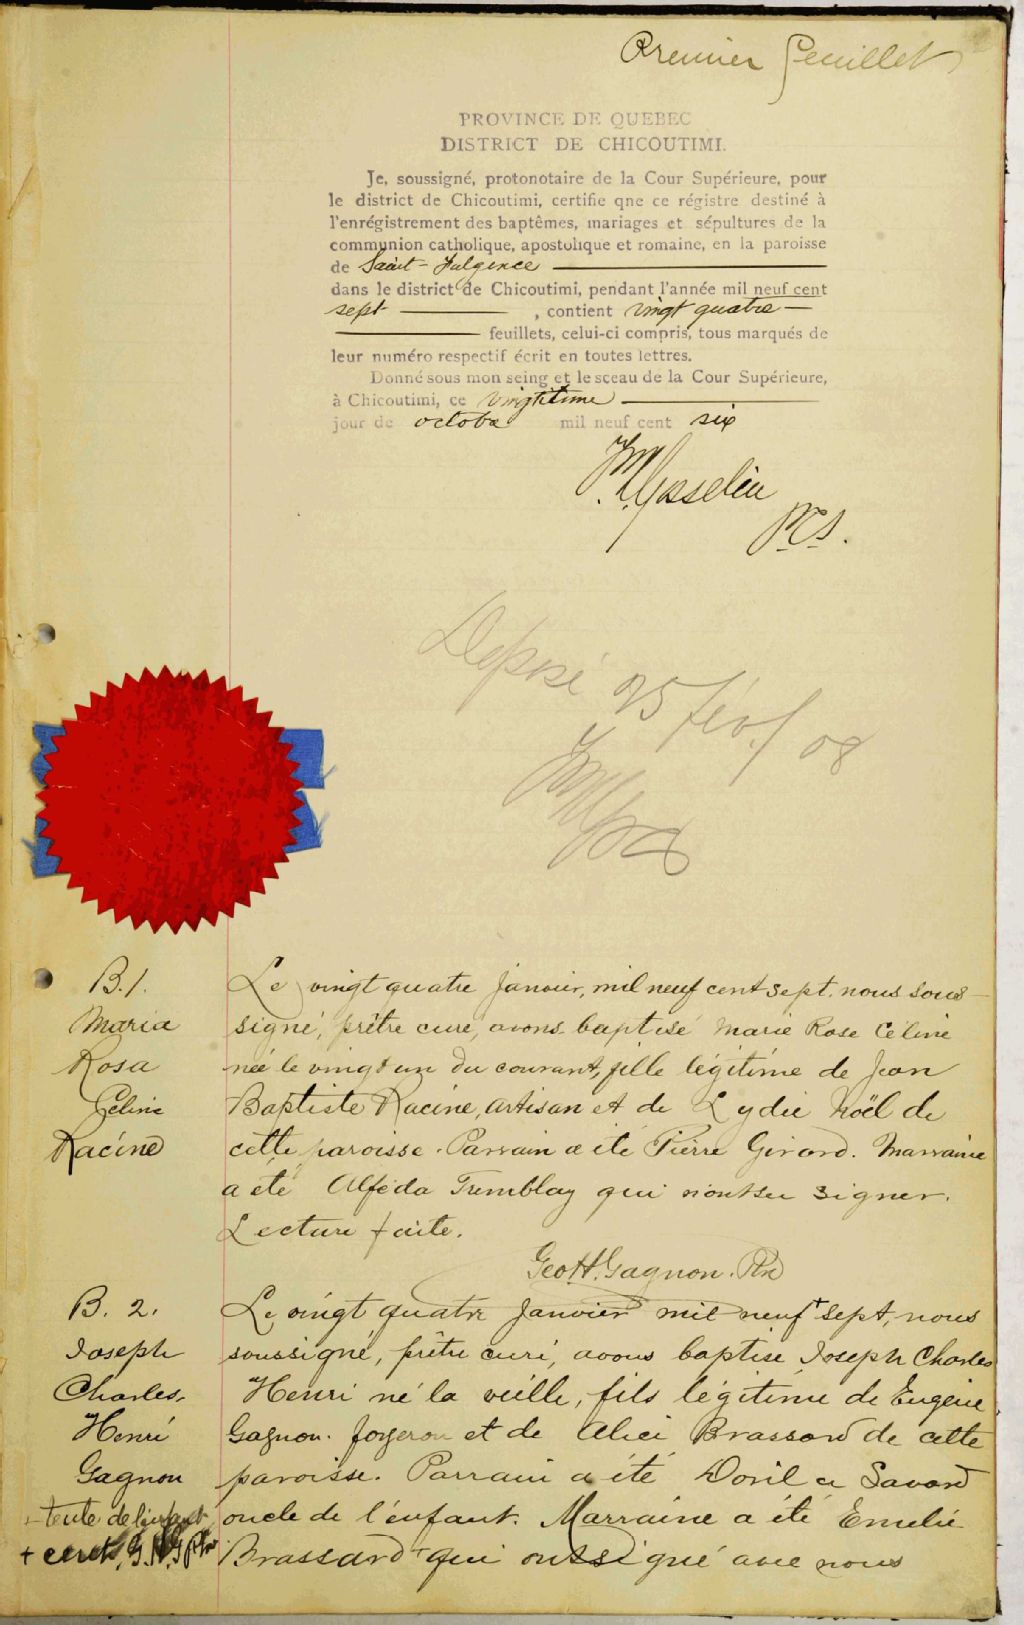 Premier feuillet
PROVINCE DE QUEBEC
DISTRICT DE CHICOUTIMI.
Je, soussigné, protonotaire de la Cour Supérieure, pour
le district de Chicoutimi, certifie qne ce régistre destiné à
l'enrégistrement des baptêmes, mariages et sépultures de la
communion catholique, apostolique et romaine, en la paroisse
de Saint-Fulgence
dans le district de Chicoutimi, pendant l'année mil neuf cent
sept , contient vingt quatre
feuillets, celui-ci compris, tous marqués de
leur numéro respectif écrit en toutes lettres.
Donné sous mon seing et le sceau de la Cour Supérieure,
à Chicoutimi, ce vingtième
jour de octobre mil neuf cent six
Gosselin
P.C.S.
Déposé 25 fév. / 08
B.1.
Maria
Rosa
Céline
Racine
Le vingt quatre Janvier, mil neuf cent sept, nous sous-
signé, prêtre curé, avons baptisé Marie Rose Céline
née le vingt un du courant, fille légitime de Jean
Baptiste Racine, artisan et de Lydie Noël de
cette paroisse. Parrain a été Pierre Girard. Marraine
a été Alféda Tremblay qui n'ont su signer.
Lecture faite.
Geo H. Gagnon. Ptre
B. 2.
Joseph
Charles
Henri
Gagnon
tente de l'enfant
+ cent, G.H.G ptre
Le vingt quatre Janvier mil neuf + sept, nous
soussigné, prêtre curé, avons baptisé Joseph Charles
Henri né la veille, fils légitime de Eugène
Gagnon. forgeron et de Alice Brassard de cette
paroisse. Parrain a été Doril a Savard
oncle de l'enfant. Marraine a été Emelie
Brassard + qui ont signé avec nous